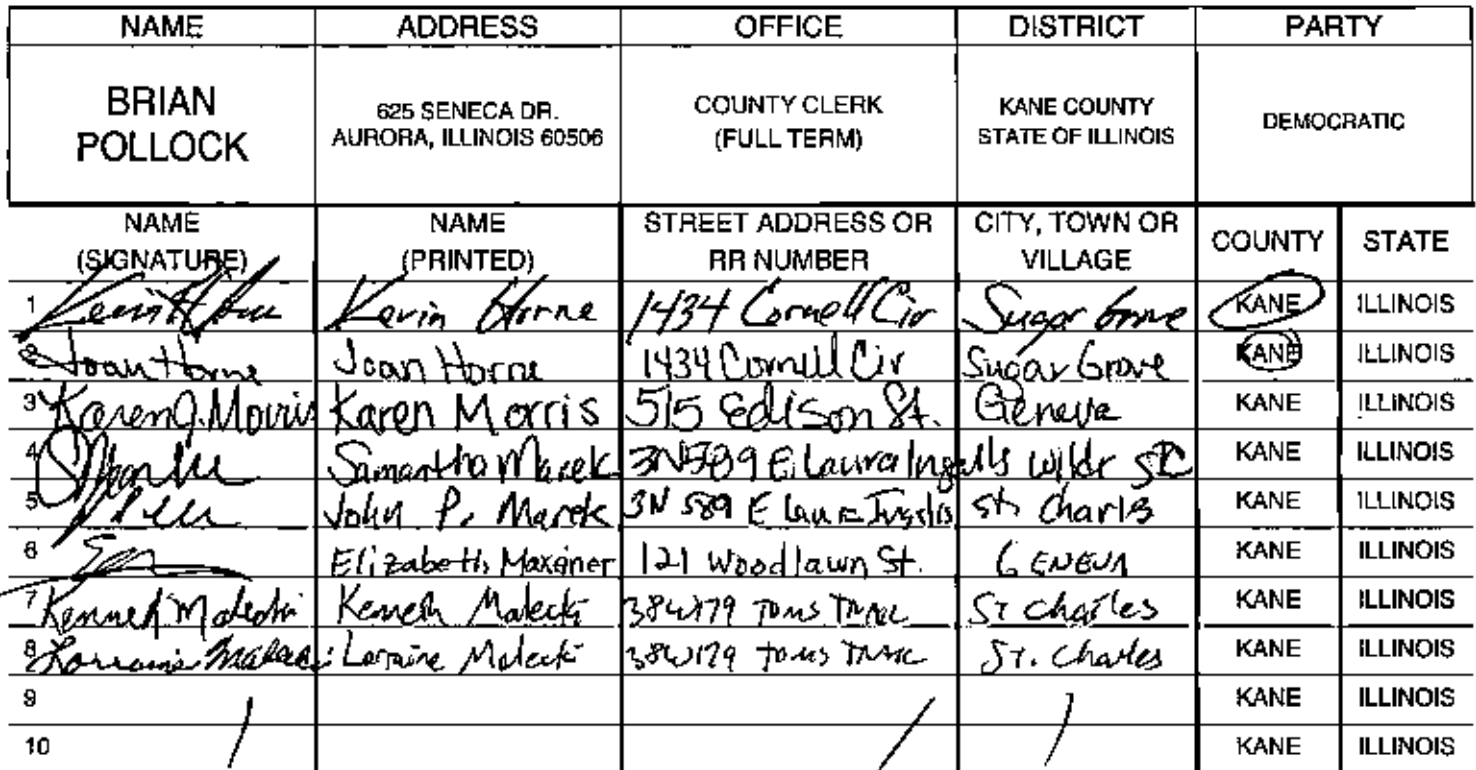 NAME ADDRESS OFFICE DISTRICT PARTY
BRIAN POLLOCK 625 SENECA DR. AURORA, ILLINOIS 60506 COUNTY CLERK (FULL TERM) KANE COUNTY STATE OF ILLINOIS DEMOCRATIC
NAME (SIGNATURE) NAME (PRINTED) STREET ADDRESS OR RR NUMBER CITY, TOWN OR VILLAGE COUNTY STATE
1 Kevin Horne 1434 Cornell Cir Sugar Grove KANE ILLINOIS
2 Joan Horne Joan Horne 1434 Cornell Cir Sugar Grove KANE ILLINOIS
3 Karen J. Morris Karen Morris 515 Edison St. Geneva KANE ILLINOIS
4 Samantha Marek 3N589 E. Laura Ingalls Wildr KANE ILLINOIS
5 John P. Marek 3N 589 E Laura St Charles KANE ILLINOIS
6 Elizabeth 121 Woodlawn St. GENEVA KANE ILLINOIS
7 Kenneth Malecki Kenneth Malecki 38W179 Toms Trail St Charles KANE ILLINOIS
8 Lorraine Malecki Lorraine Malecki 38W179 Toms Trail St. Charles KANE ILLINOIS
9 KANE ILLINOIS
10 KANE ILLINOIS